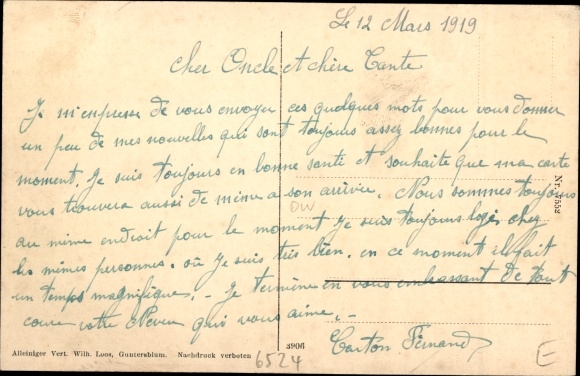 Le 12 Mars 1919
Cher Oncle et chère Tante
Je m'empresse de vous envoyer ces quelques mots pour vous donner
un peu de mes nouvelles qui sont toujours assez bonnes pour le
moment. Je suis toujours en bonne santé et souhaite que ma carte
vous trouvera aussi de même a son arrivée. Nous sommes toujours
au même endroit pour le moment je suis toujours logé chez
les mêmes personnes. où je suis très bien. en ce moment il fait
un temps magnifique. - Je termine en vous embrassant de tout
cœur votre Neveu qui vous aime. -
Carton Fernand
DW
Nr. 7552
Alleiniger Vert. Wilh. Loos, Guntersblum. Nachdruck verboten
6524
3906
E